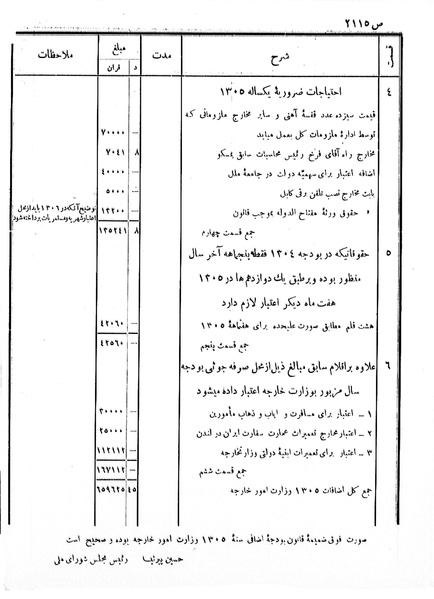 ص ٢١١٥
قسمت شرح مدت مبلغ ملاحظات
قران د
٤ احتیاجات ضروریهٔ یکساله ١٣٠٥
قیمت سیزده عدد قفسهٔ آهنی و سایر مخارج ملزوماتی که
توسط ادارهٔ ملزومات کل بعمل میاید ٧٠٠٠٠ —
مخارج راه آقای فرخ رئیس محاسبات سابق بمسکو ٧٠٤١ ٨
اضافه اعتبار برای سهمیهٔ دولت در جامعهٔ ملل ٤٠٠٠٠ —
بابت مخارج نصب تلفن برقی کابل ٥٠٠٠ —
حقوق ورثهٔ مفتاح الدوله بموجب قانون ١٣٢٠٠ — توضیح آنکه در ١٣٠٦ باید از محل
اعتبار شهریه و مستمریات پرداخته شود
جمع قسمت چهارم ١٣٥٢٤١ ٨
٥ حقوقاتیکه در بودجه ١٣٠٤ فقط پنجماهه آخر سال
منظور بوده و بر طبق یک دوازدهم ها در ١٣٠٥
هفت ماه دیگر اعتبار لازم دارد
هشت قلم مطابق صورت علیحده برای هفتماههٔ ١٣٠٥ ٤٢٥٦٠ —
جمع قسمت پنجم ٤٢٥٦٠ —
٦ علاوه بر اقلام سابق مبالغ ذیل از محل صرفه جوئی بودجه
سال مزبور بوزارت خارجه اعتبار داده میشود
١ ـ اعتبار برای مسافرت و ایاب و ذهاب مأمورین ٣٠٠٠٠ —
٢ ـ اعتبار مخارج تعمیرات عمارت سفارت ایران در لندن ٢٥٠٠٠ —
٣ ـ اعتبار برای تعمیرات ابنیهٔ دولتی وزارتخارجه ١١٢١١٢ —
جمع قسمت ششم ١٦٧١١٢ —
جمع کل اضافات ١٣٠٥ وزارت امور خارجه ٦٥٩٦٢٥ ٤٥
صورت فوق ضمیمهٔ قانون بودجهٔ اضافی سنهٔ ١٣٠٥ وزارت امور خارجه بوده و صحیح است
رئیس مجلس شورای ملی حسین پیرنیا